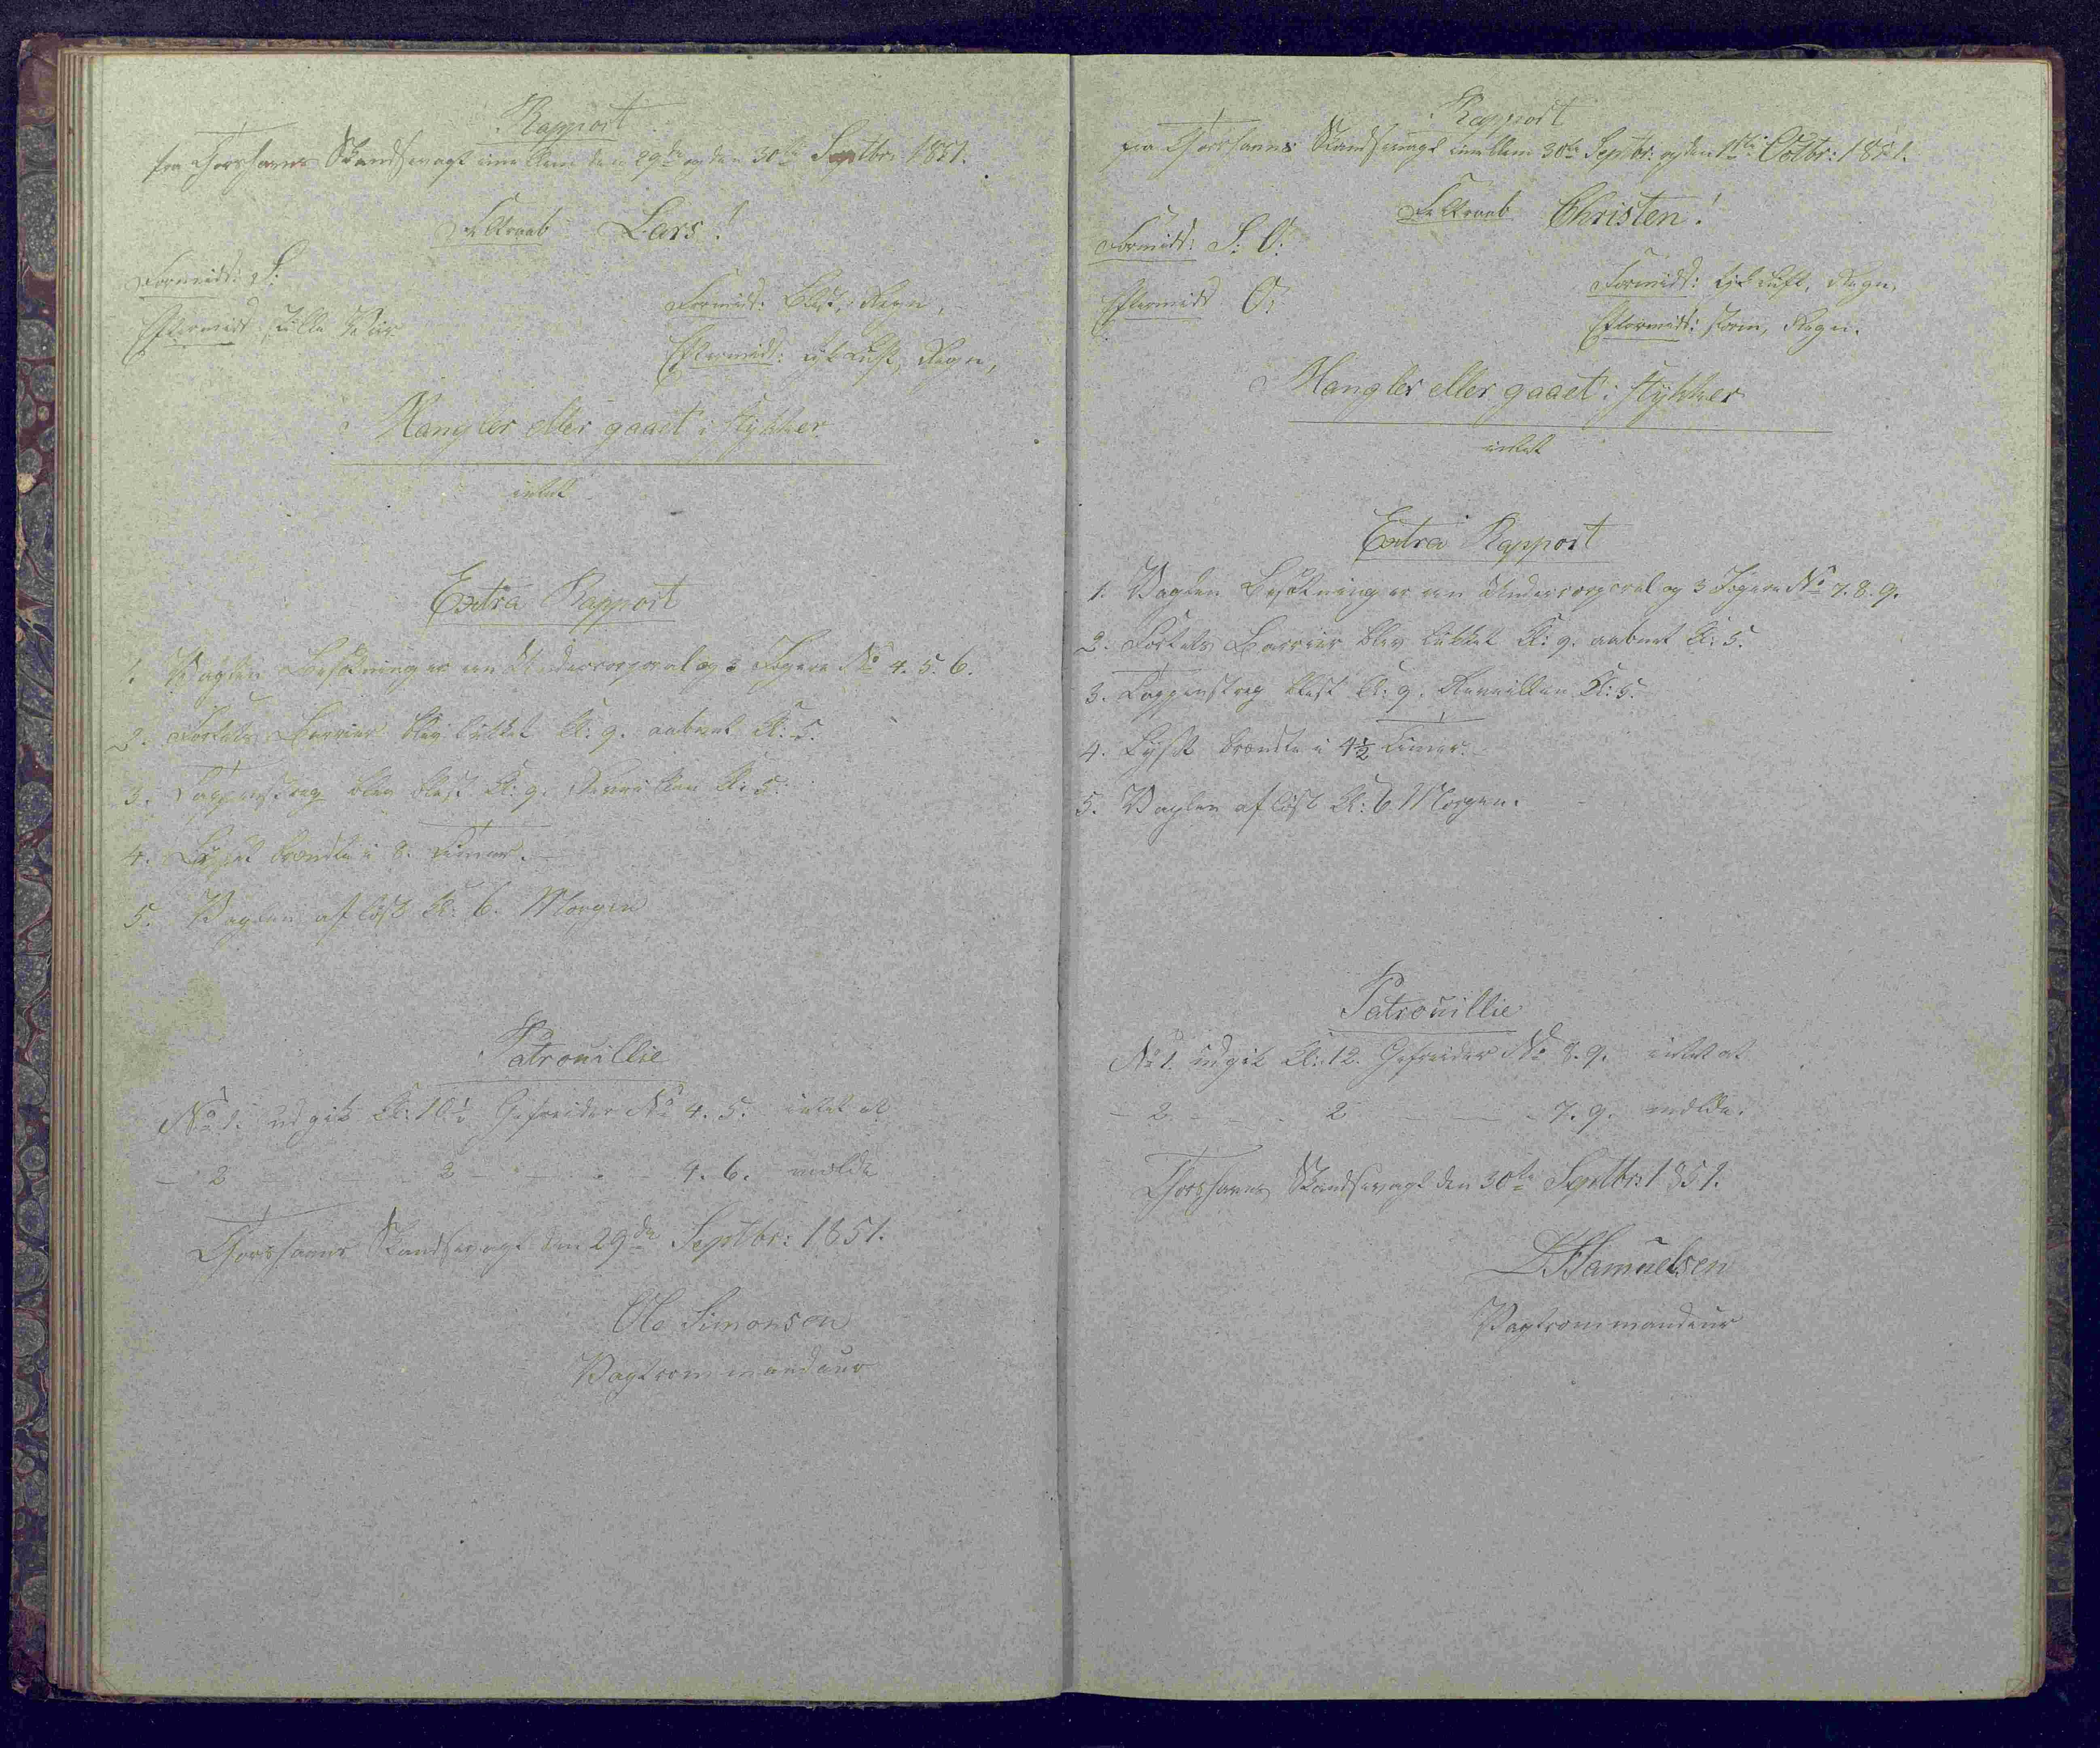 Rapport
fra Thorshavns Skandsevagt imellem den 29de og den 30te Septbr: 1851.
Feltraab Lars!
Formidd: S:
Eftermidd: stille Veir
Formidd: Blæst, Regn,
Eftermidd: tyk Luft, Regn,
Mangler eller gaaet i stykker
intet
Extra Rapport
1. Vagtens Besætning er en Undercorporal og 3 Jægere No 4. 5. 6.
2. Fortets Barriere blev lukket Kl: 9. aabnet Kl: 5.
3. Tappenstreg blev blæst Kl: 9. Reveillen Kl: 5.
4. Lyset brændte i 8. Timer.
5. Vagten afløst Kl: 6. Morgen
Patrouillie
No 1. udgik Kl: 10½ Gefreider No 4. 5. intet at
- 2 - - - 2 - - - 4. 6. melde
Thorshavns Skandsevagt den 29de Septbr: 1851.
Ole Simonsen
Vagtcommandeur
Rapport
fra Thorshavns Skandsevagt imellem 30te Septbr: og den 1ste Octbr: 1851.
Feltraab Christen!
Formidd: S: O:
Eftermidd O:
Formidd: tyk Luft, Regn,
Eftermidd: Storm, Regn.
Mangler eller gaaet i stykker
intet
Extra Rapport
1. Vagten Besætning er en Undercorporal og 3 Jægere No 7. 8. 9.
2. Fortets Barriere blev lukket Kl: 9. aabnet Kl: 5.
3. Tappenstreg blæst Kl: 9. Reveillen Kl: 5.
4. Lyset brændte i 4½ Timer.
5. Vagten afløst Kl: 6 Morgen.
Patrouillie
No 1. udgik Kl: 12. Gefreider No 8. 9. intet at
- 2. - - - 2 - - - 7. 9. melde.
Thorshavns Skandsevagt den 30te Septbr: 1851.
Samuelsen
Vagtcommandeur